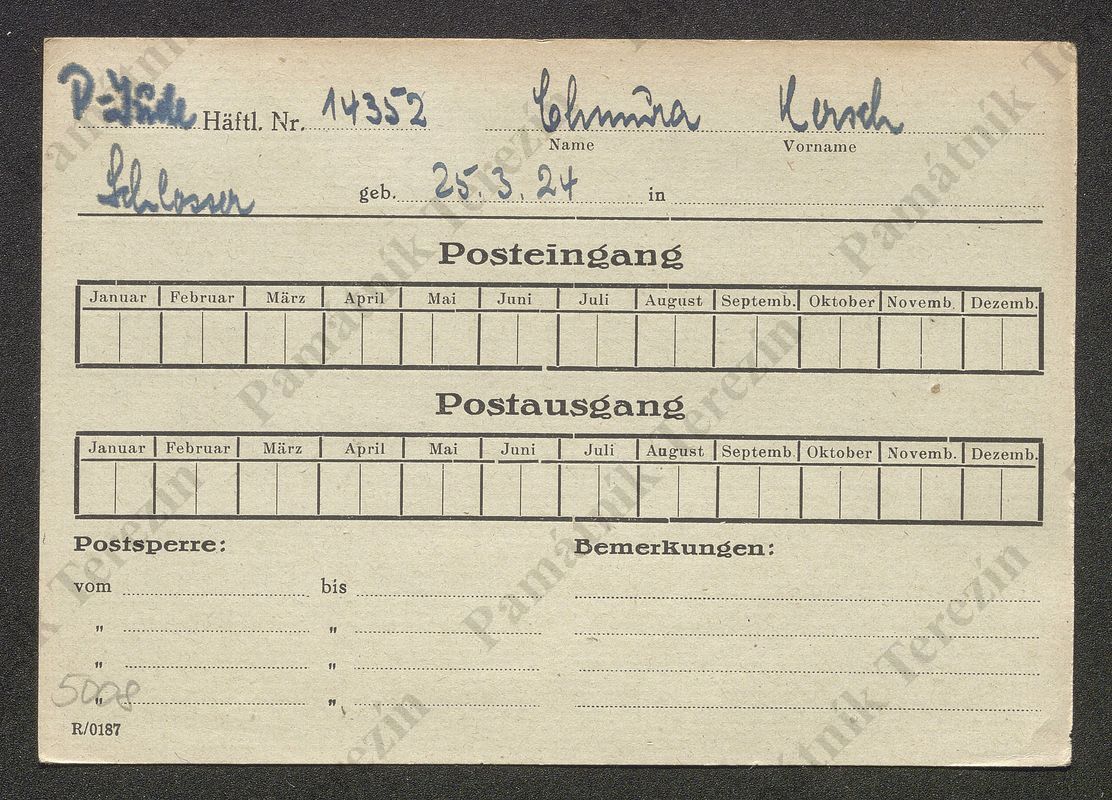 P-Jude Häftl. Nr. 14352 Chmura Hersch
Name Vorname
Schlosser geb. 25.3.24 in
Posteingang
Januar Februar März April Mai Juni Juli August Septemb. Oktober Novemb. Dezemb.
Postausgang
Januar Februar März April Mai Juni Juli August Septemb. Oktober Novemb. Dezemb.
Postsperre: Bemerkungen:
vom bis
" "
" "
5008 " "
R/0187
Památník Terezín